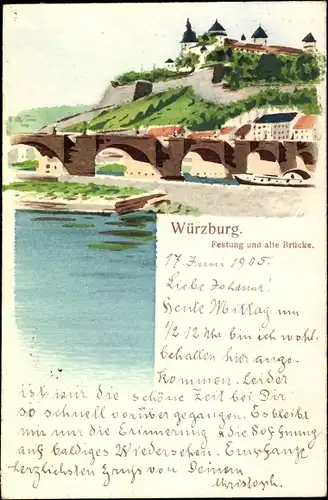 Würzburg.
Festung und alte Brücke.
17. Juni 1905.
Liebe Johanna!
Heute Mittag um
1/2 12 Uhr bin ich wohl-
behalten hier ange-
kommen. Leider
ist nur die schöne Zeit bei Dir
so schnell vorüber gegangen. Es bleibt
mir nur die Erinnerung & die Hoffnung
auf baldiges Wiedersehen. Empfange
herzlichsten Gruß von Deinem
Christoph.